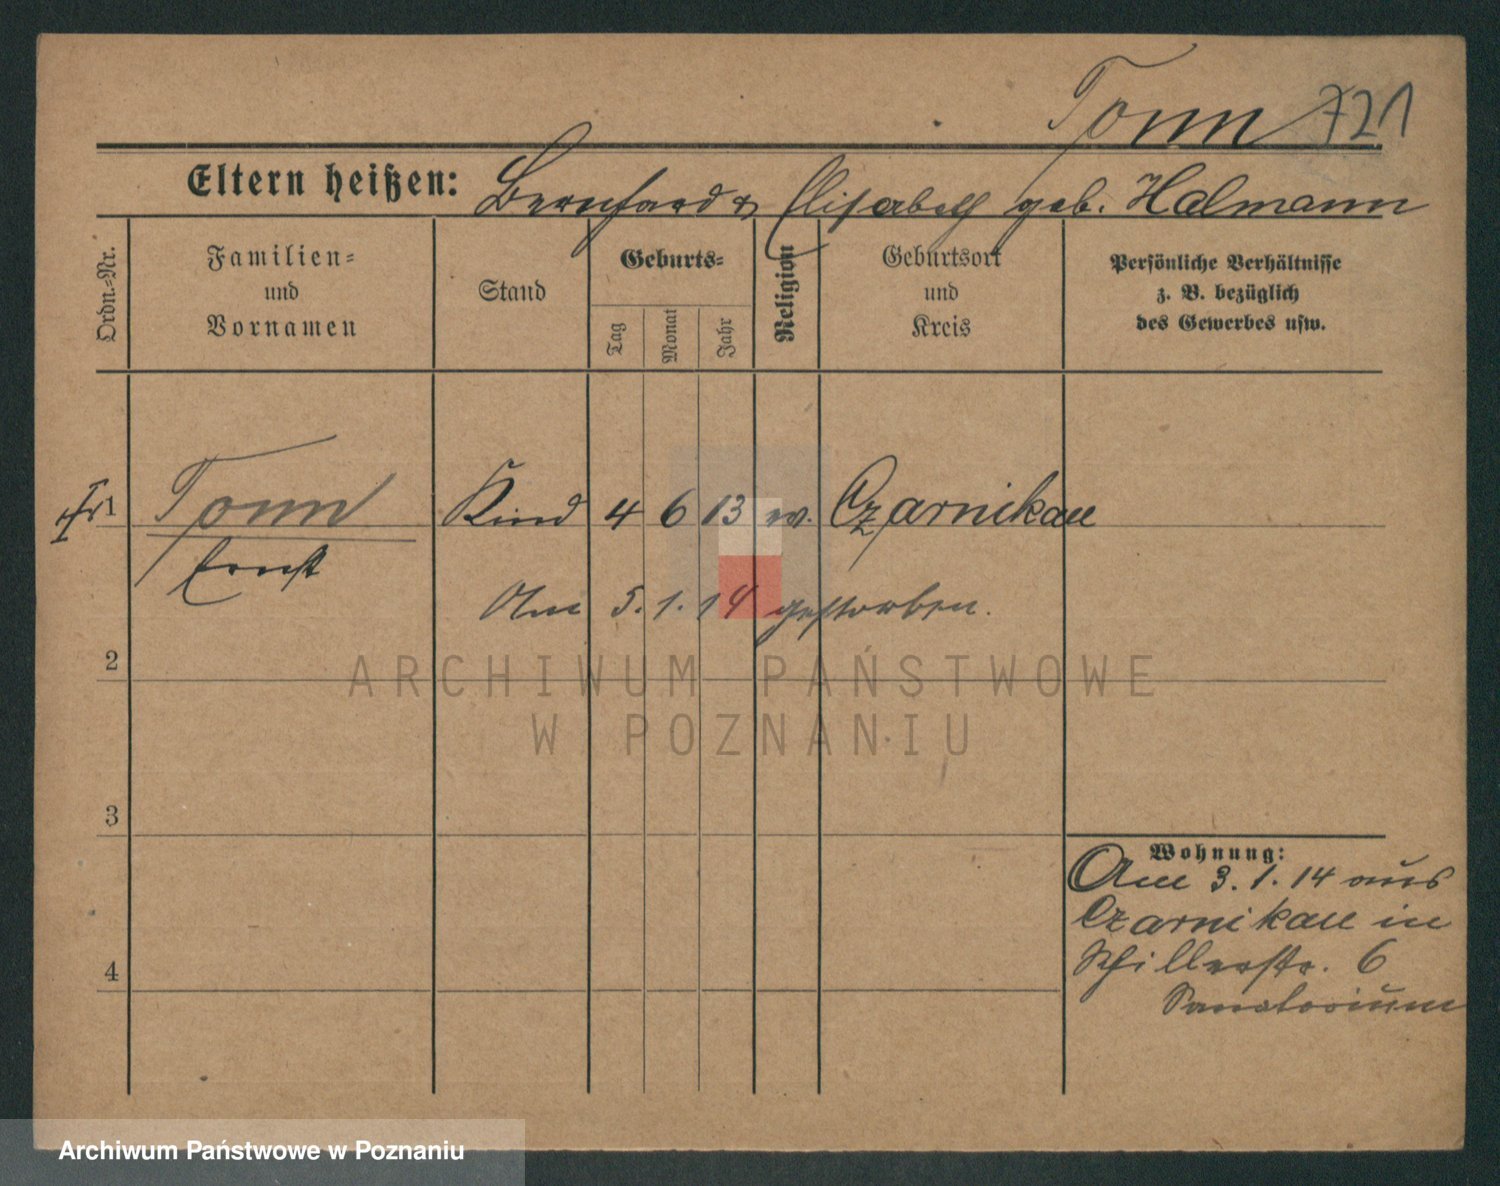 Tonn 721
Eltern heißen: Bernhard & Elisabeth geb. Halmann
Ordn.-Nr.
Familien=
und
Vornamen
Stand
Geburts=
Tag
Monat
Jahr
Religion
Geburtsort
und
Kreis
Persönliche Verhältnisse
z. B. bezüglich
des Gewerbes usw.
1 Tonn Kind 4 6 13 ev. Czarnikau
Ernst
Am 5. 1. 14 gestorben.
2
ARCHIWUM PAŃSTWOWE
W POZNANIU
3
Wohnung:
Am 3. 1. 14 aus
Czarnikau in
Schillerstr. 6
Sanatorium
4
Archiwum Państwowe w Poznaniu